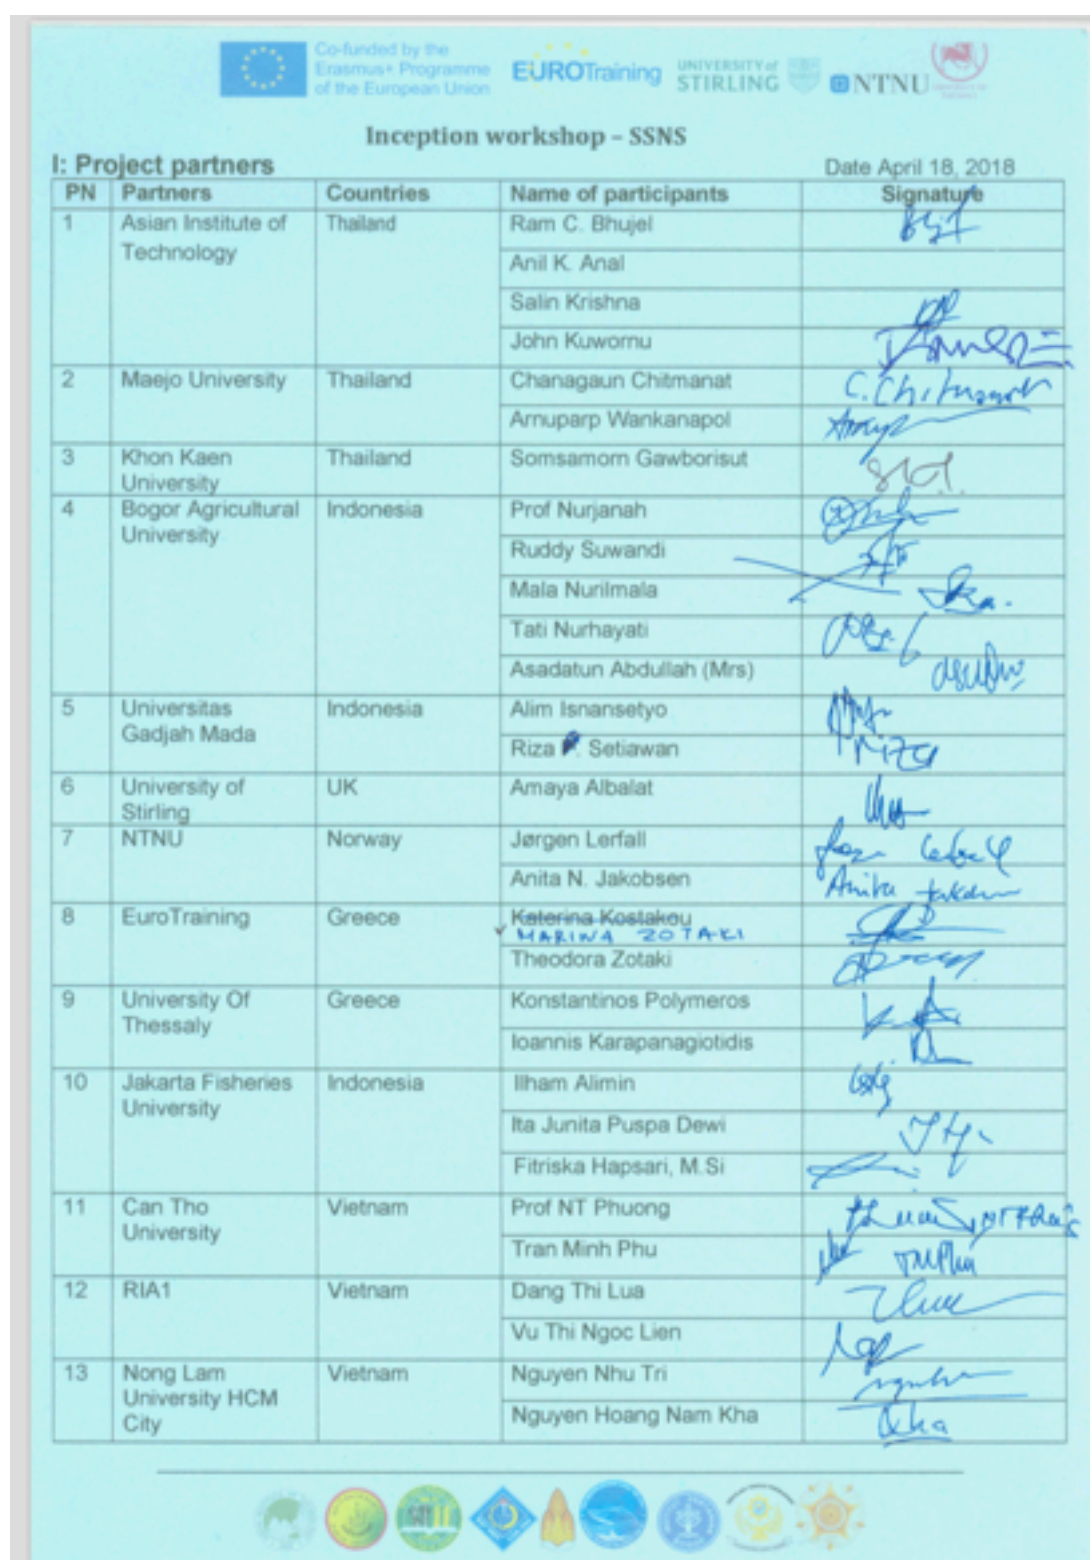 Co-funded by the
Erasmus+ Programme
of the European Union
EUROTraining
UNIVERSITY of
STIRLING
NTNU
Inception workshop – SSNS
I: Project partners
Date April 18, 2018
PN Partners Countries Name of participants Signature
1 Asian Institute of Technology Thailand Ram C. Bhujel
Anil K. Anal
Salin Krishna
John Kuwornu
2 Maejo University Thailand Chanagaun Chitmanat C. Chitmanat
Arnuparp Wankanapol
3 Khon Kaen University Thailand Somsamorn Gawborisut
4 Bogor Agricultural University Indonesia Prof Nurjanah
Ruddy Suwandi
Mala Nurilmala
Tati Nurhayati
Asadatun Abdullah (Mrs)
5 Universitas Gadjah Mada Indonesia Alim Isnansetyo
Riza Setiawan Riza
6 University of Stirling UK Amaya Albalat
7 NTNU Norway Jørgen Lerfall
Anita N. Jakobsen Anita
8 EuroTraining Greece Katerina Kostakou
MARINA ZOTAKI
Theodora Zotaki
9 University Of Thessaly Greece Konstantinos Polymeros
Ioannis Karapanagiotidis
10 Jakarta Fisheries University Indonesia Ilham Alimin
Ita Junita Puspa Dewi
Fitriska Hapsari, M.Si
11 Can Tho University Vietnam Prof NT Phuong
Tran Minh Phu TMPhu
12 RIA1 Vietnam Dang Thi Lua
Vu Thi Ngoc Lien
13 Nong Lam University HCM City Vietnam Nguyen Nhu Tri
Nguyen Hoang Nam Kha Kha